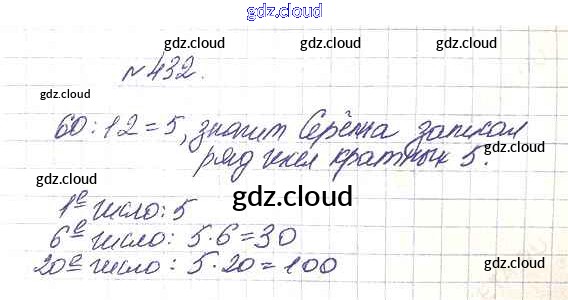 gdz.cloud
gdz.cloud
gdz.cloud
№432.
gdz.cloud
60:12=5, значит Серёжа записал
gdz.cloud
ряд чисел кратных 5.
gdz.cloud
gdz.cloud
1е число: 5
6е число: 5·6=30
20е число: 5·20=100
gdz.cloud
gdz.cloud